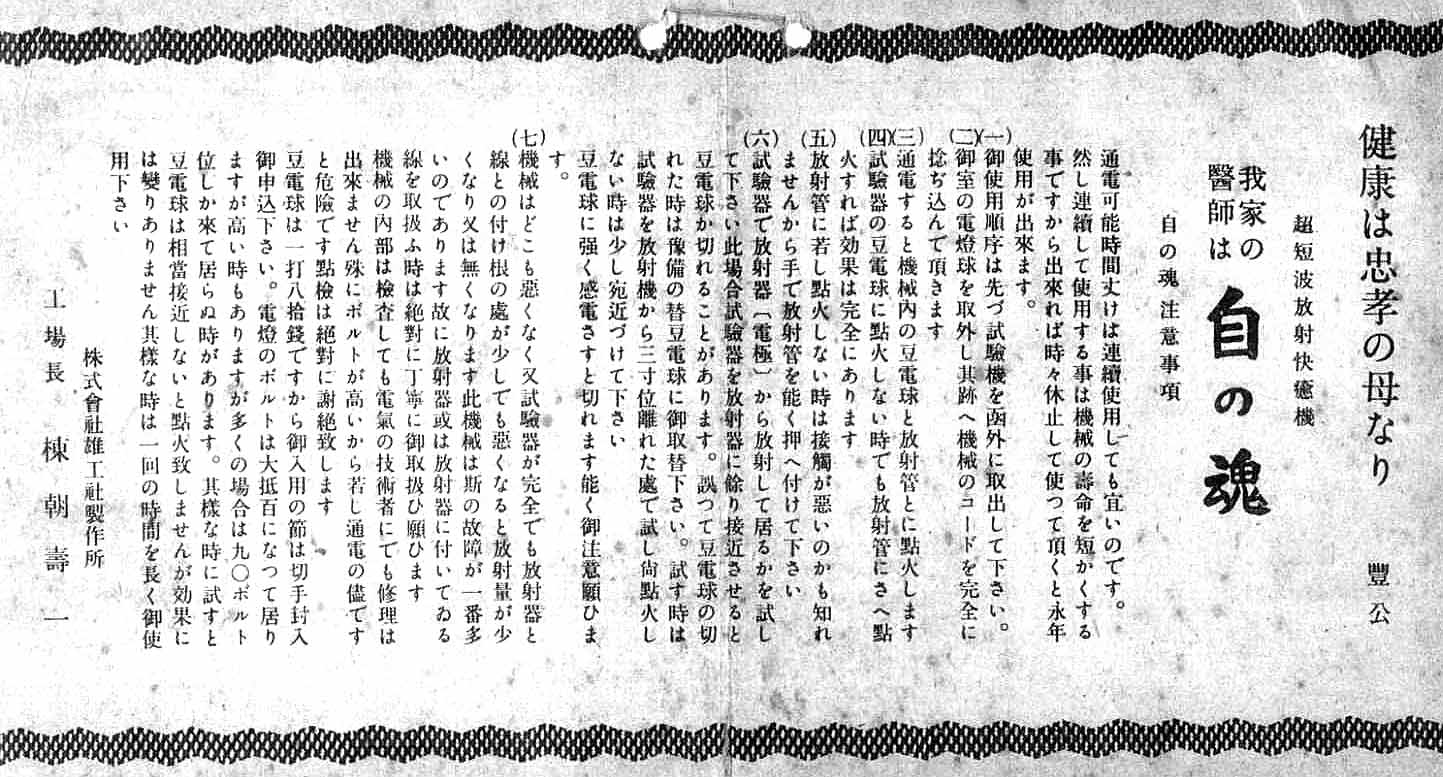 健康は忠孝の母なり　豐公
超短波放射快癒機
我家の
醫師は
自の魂
自の魂 注意事項
通電可能時間丈けは連續使用しても宜いのです。
然し連續して使用する事は機械の壽命を短かくする
事ですから出來れば時々休止して使つて頂くと永年
使用が出來ます。
(一)御使用順序は先づ試驗機を函外に取出して下さい。
(二)御室の電燈球を取外し其跡へ機械のコードを完全に
捻ぢ込んで頂きます
(三)通電すると機械內の豆電球と放射管とに點火します
(四)試驗器の豆電球に點火しない時でも放射管にさへ點
火すれば効果は完全にあります
(五)放射管に若し點火しない時は接觸が惡いのかも知れ
ませんから手で放射管を能く押へ付けて下さい
(六)試驗器で放射器〔電極〕から放射して居るかを試し
て下さい此場合試驗器を放射器に餘り接近させると
豆電球か切れることがあります。誤つて豆電球の切
れた時は豫備の替豆電球に御取替下さい。試す時は
試驗器を放射機から三寸位離れた處で試し尙點火し
ない時は少し宛近づけて下さい
豆電球に强く感電さすと切れます能く御注意願ひま
す。
(七)機械はどこも惡くなく又試驗器が完全でも放射器と
線との付け根の處が少しでも惡くなると放射量が少
くなり又は無くなります此機械は斯の故障が一番多
いのであります故に放射器或は放射器に付いてゐる
線を取扱ふ時は絕對に丁寧に御取扱ひ願ひます
機械の內部は檢査しても電氣の技術者にても修理は
出來ません殊にボルトが高いから若し通電の儘です
と危險です點檢は絕對に謝絕致します
豆電球は一打八拾錢ですから御入用の節は切手封入
御申込下さい。電燈のボルトは大抵百になつて居り
ますが高い時もありますが多くの場合は九〇ボルト
位しか來て居らぬ時があります。其樣な時に試すと
豆電球は相當接近しないと點火致しませんが効果に
は變りありません其樣な時は一回の時間を長く御使
用下さい
株式會社雄工社製作所
工場長　棟朝壽一